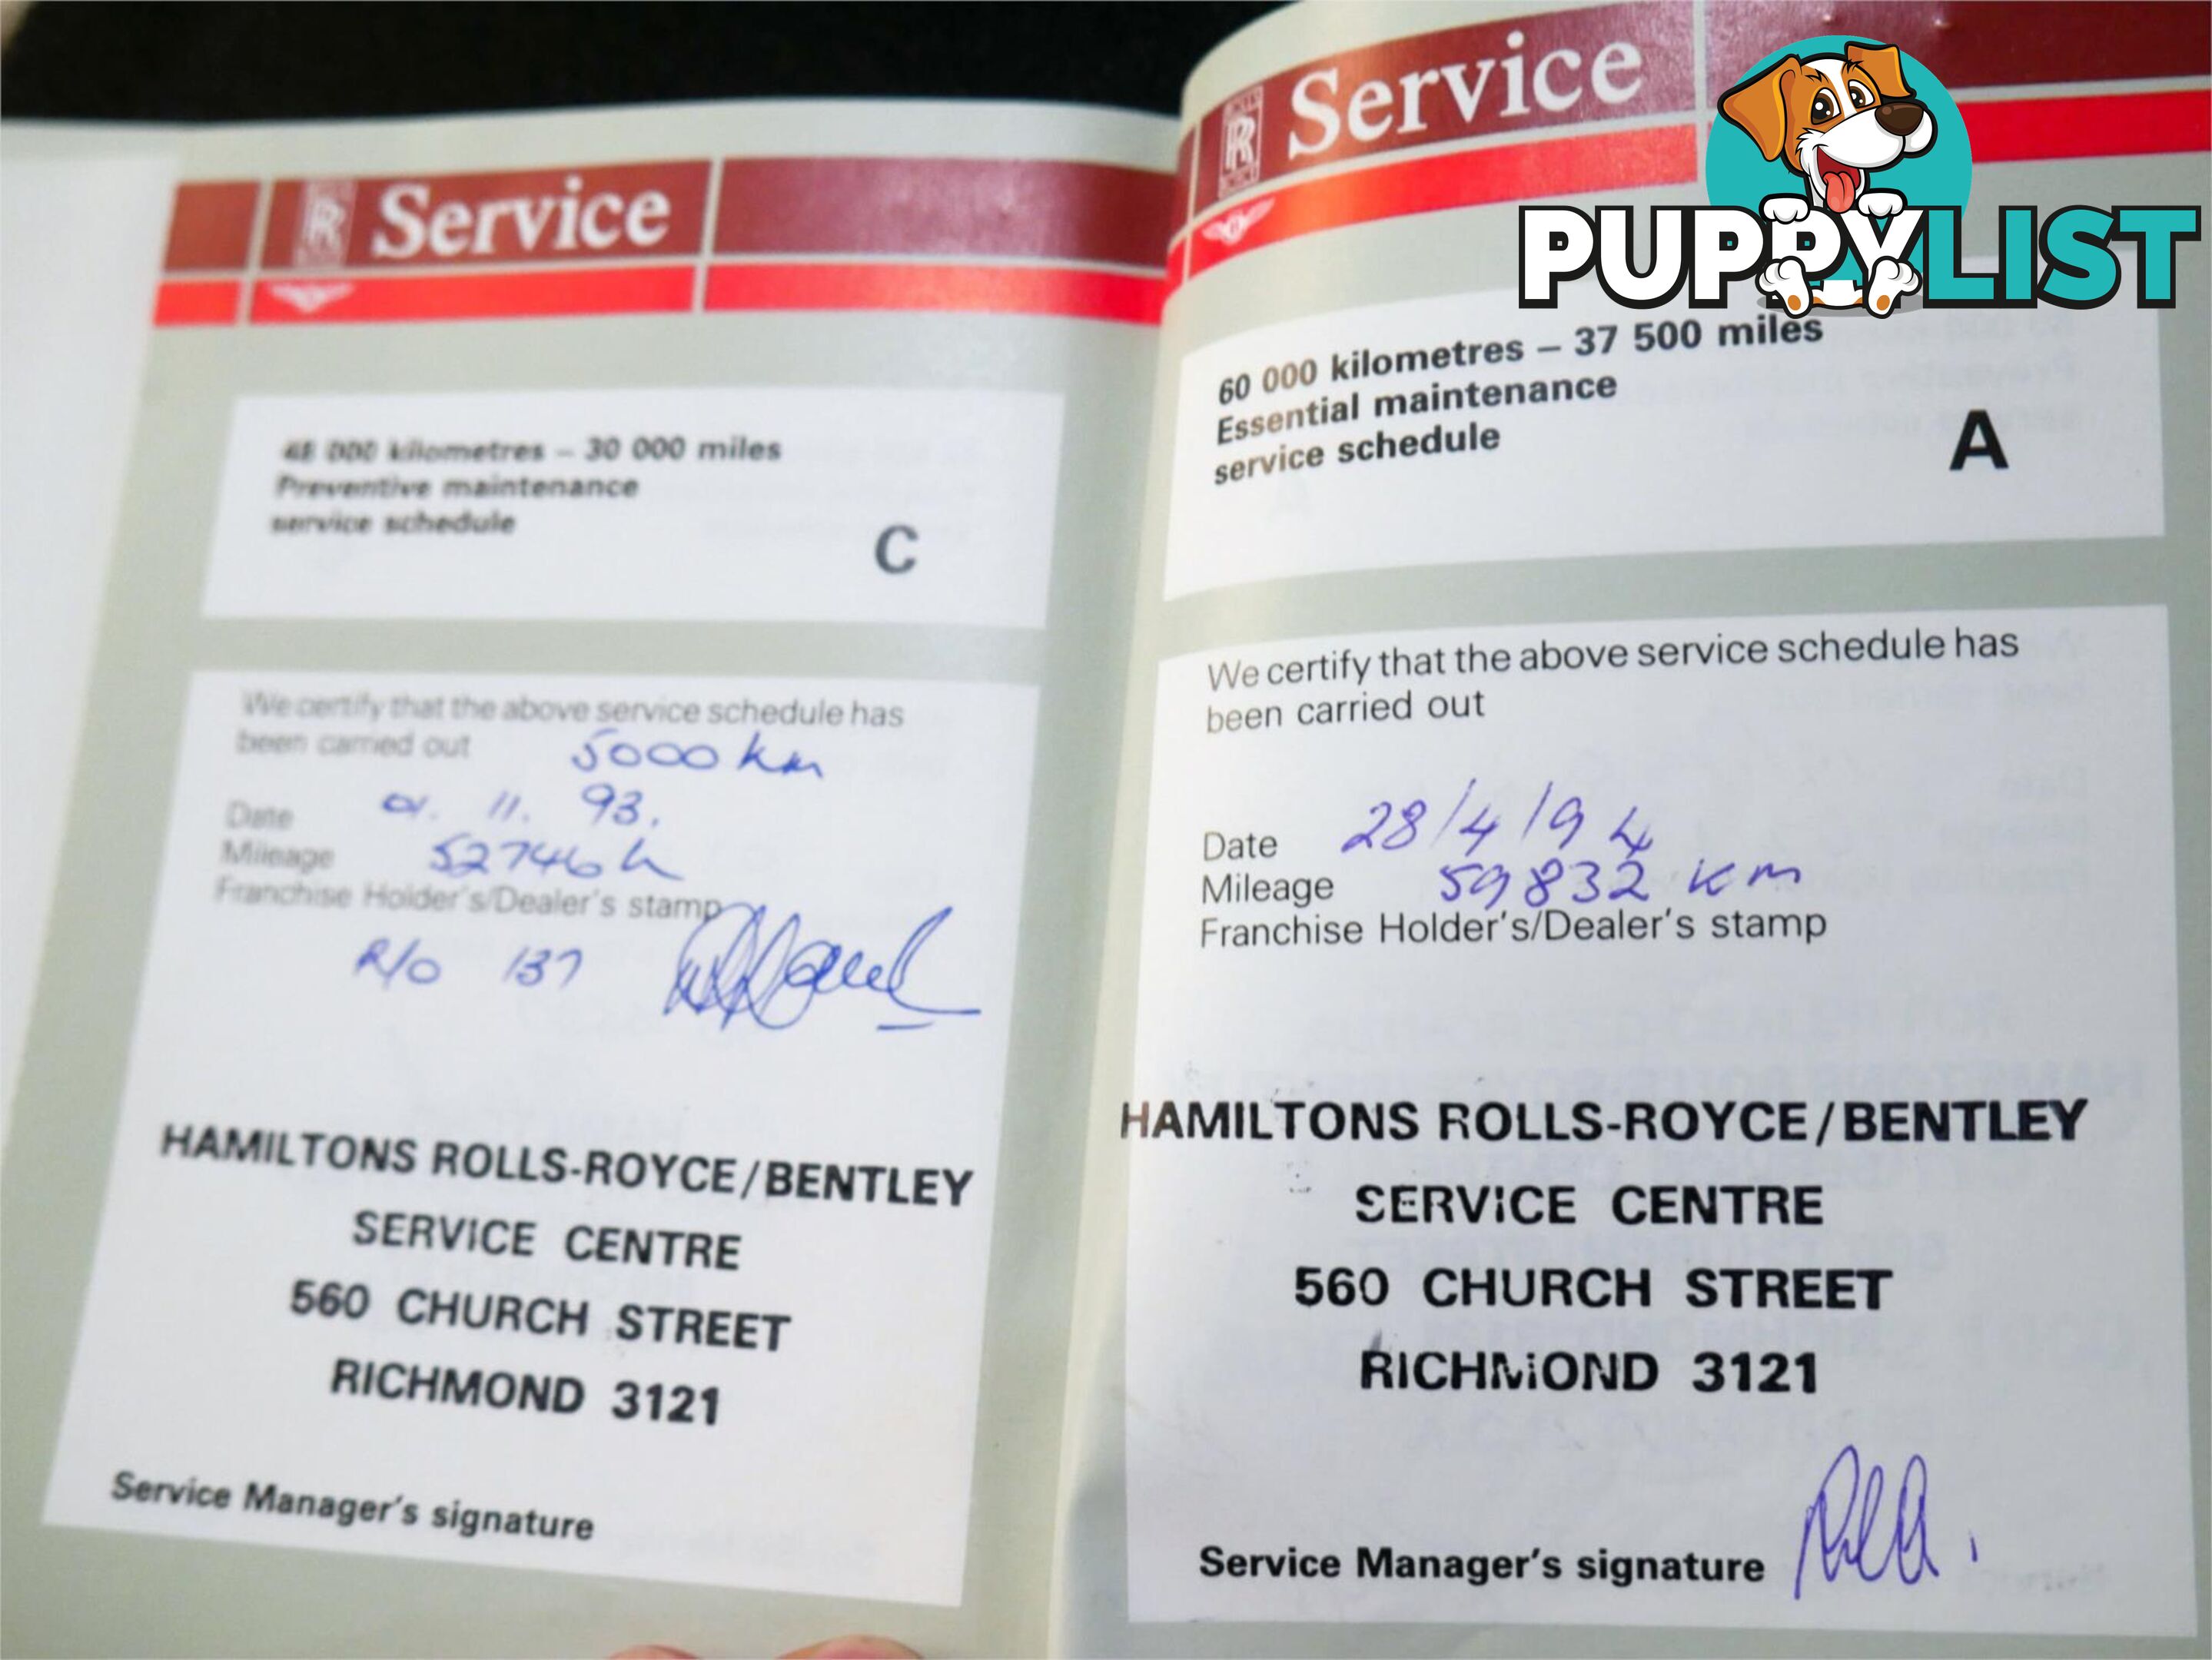 Service
48 000 kilometres – 30 000 miles
Preventive maintenance
service schedule
C
We certify that the above service schedule has
been carried out 5000 km
Date 01. 11. 93.
Mileage 52746 k
Franchise Holder's/Dealer's stamp
R/O 137
HAMILTONS ROLLS-ROYCE/BENTLEY
SERVICE CENTRE
560 CHURCH STREET
RICHMOND 3121
Service Manager's signature
Service
PUPPYLIST
60 000 kilometres – 37 500 miles
Essential maintenance
service schedule
A
We certify that the above service schedule has
been carried out
Date 28/4/94
Mileage 59832 km
Franchise Holder's/Dealer's stamp
HAMILTONS ROLLS-ROYCE/BENTLEY
SERVICE CENTRE
560 CHURCH STREET
RICHMOND 3121
Service Manager's signature